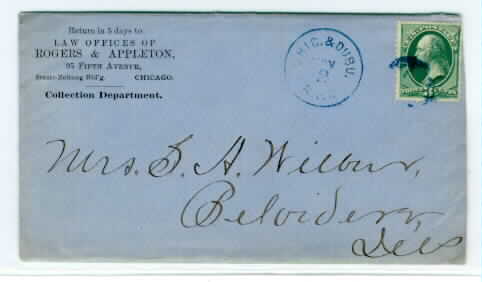 Return in 5 days to
LAW OFFICES OF
ROGERS & APPLETON,
95 FIFTH AVENUE,
Staats-Zeitung Bld'g. CHICAGO.
Collection Department.
CHIC. & DUBU.
NOV
R.P.O.
Mrs. S. A. Wilbur,
Belvidere
Ills